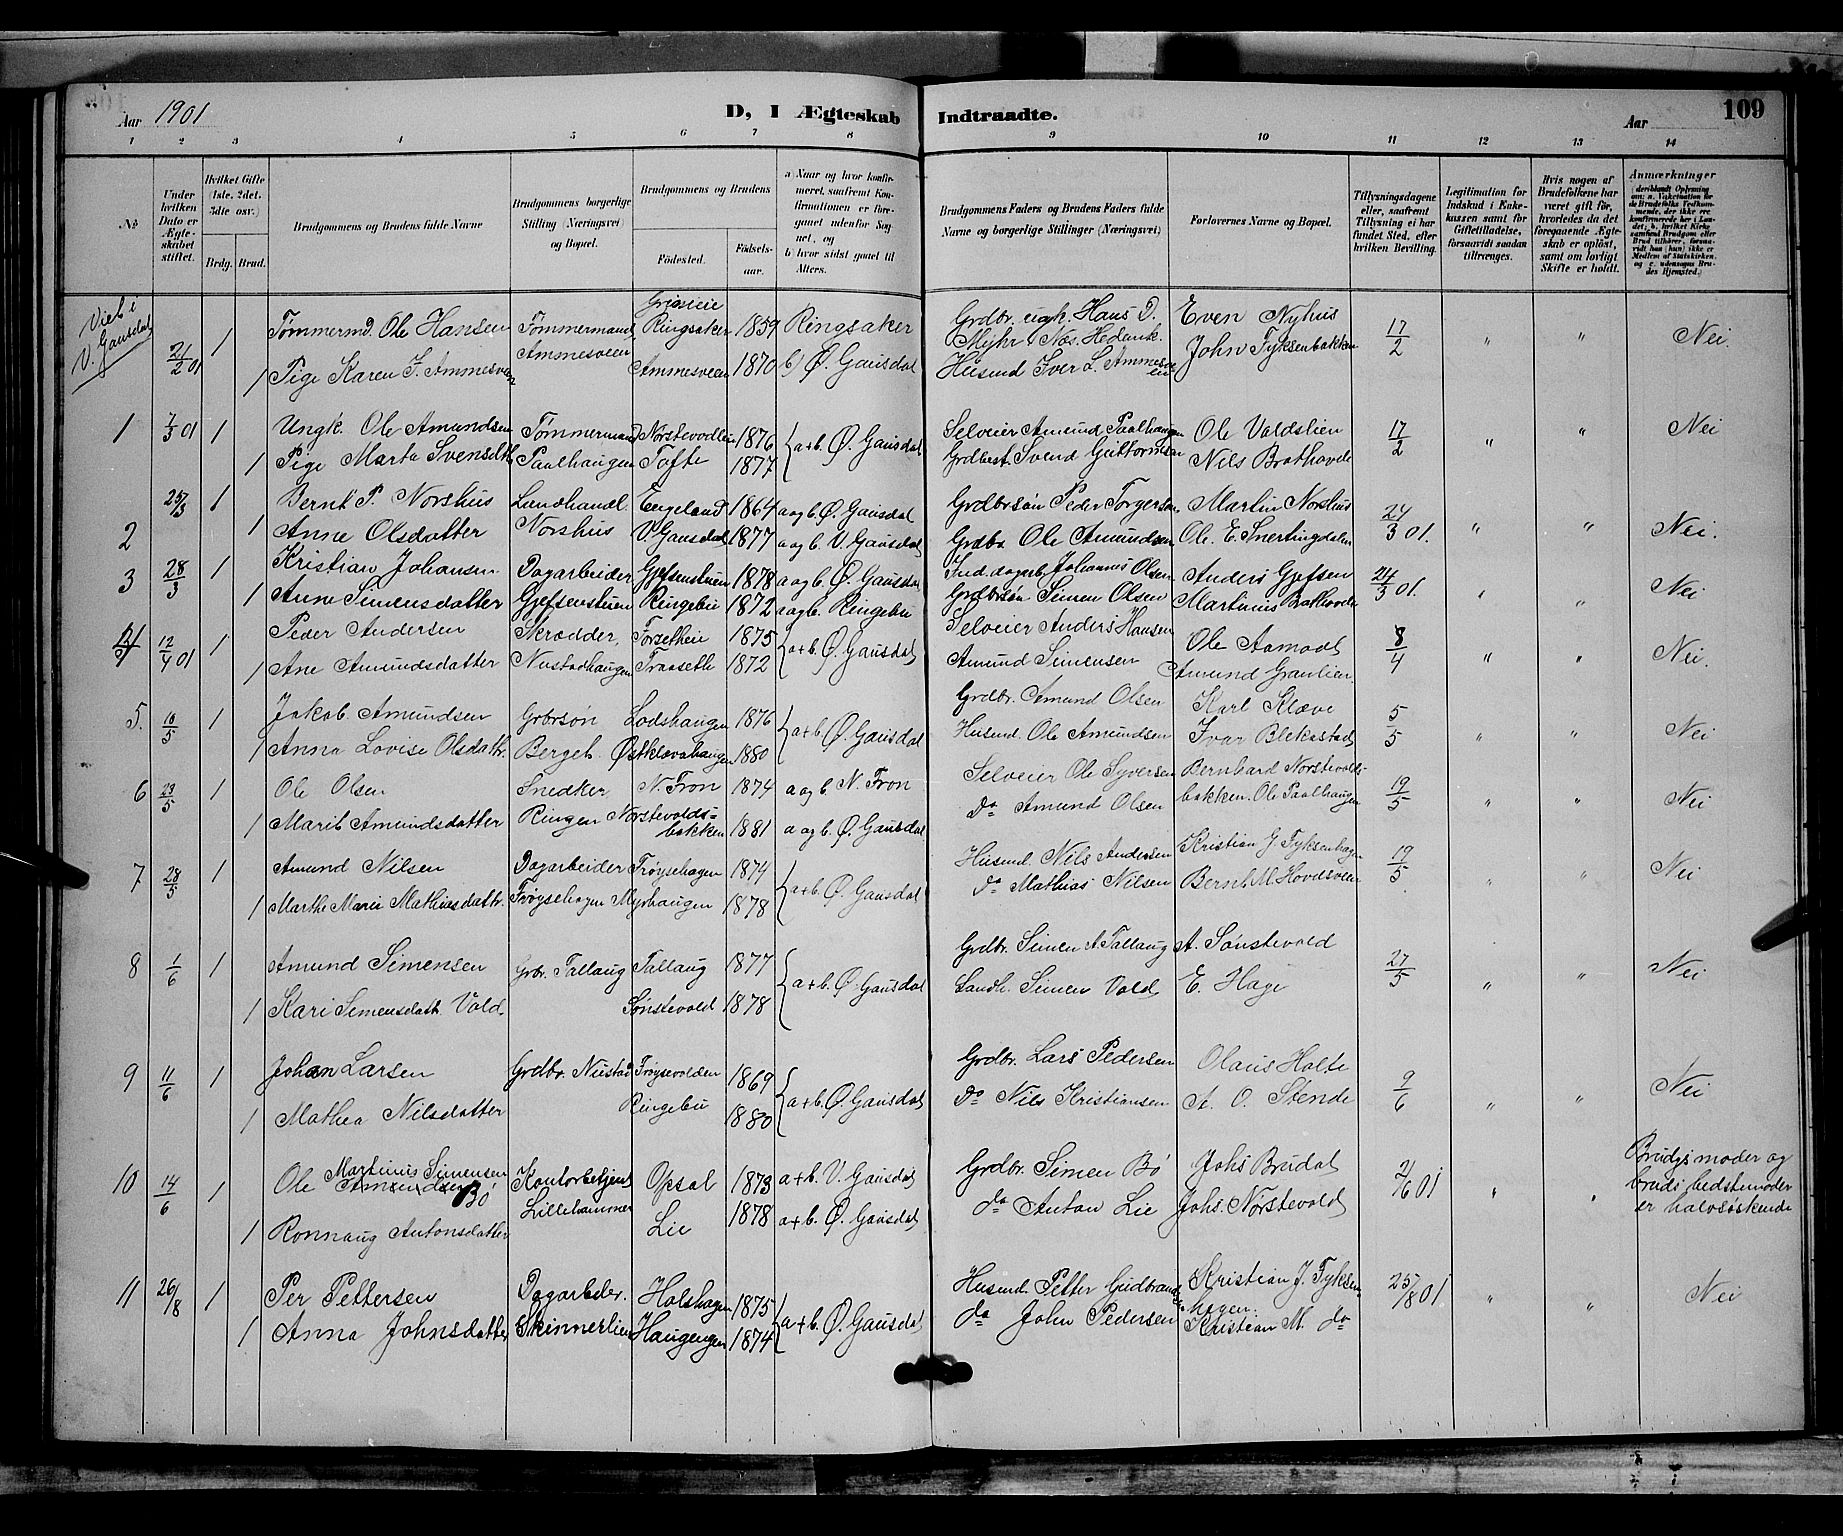 Aar 1901
D, I Ægteskab Indtraadte.
Aar
109
1 2 3 4 5 6 7 8 9 10 11 12 13 14
No
Under hvilken Dato er Ægteskabet stiftet.
Hvilket Gifte (1ste, 2det, 3die osv.)
Brdg. Brud.
Brudgommens og Brudens fulde Navne
Brudgommens borgerlige Stilling (Næringsvei) og Bopæl.
Brudgommens og Brudens
Födested.
Födselsaar.
a) Naar og hvor konfirmeret, saafremt Konfirmationen er foregaaet udenfor Sognet, og
b) hvor sidst gaaet til Alters.
Brudgommens Faders og Brudens Faders fulde Navne og borgerlige Stillinger (Næringsvei)
Forlovernes Navne og Bopæl.
Tillysningsdagene eller, saafremt Tillysning ei har fundet Sted, efter hvilken Bevilling.
Legitimation for Indskud i Enkekassen samt for Giftetilladelse, forsaavidt saadan tiltrænges.
Hvis nogen af Brudefolkene har været gift för, hvorledes da det foregaaende Ægteskab er oplöst, samt om lovligt Skifte er holdt.
Anmærkninger
Viet i V. Gausdal 21/2 01 1 Tömmermd. Ole Hansen Tömmermand Ringsaker 1859 Ringsaker Grdbr. Hans D. Myhr Næs. Hedemk. Even Nyhus 17/2 " " Nei.
1 Pige Karen I. Ammesveen Ammesveen Ammesveen 1870 b) Ø. Gausdal Husmd Iver L. Ammesveen John Fyksenbakken
1 7/3 01 1 Ungk. Ole Amundsen Tømmermand Norstevodlien 1876 a+b. Ø. Gausdal Selveier Amund Paalhaugen Ole Valdslien 17/2 " " Nei
1 Pige Marta Svensdtr Paalhaugen Tofte 1877 Grdbest. Svend Guttormsen Nils Brathovde
2 25/3 1 Bernt P. Norshus Landhandl. Engeland 1864 a og b. Ø. Gausdal Grdbrsön Peder Torgersen Martin Norshus 24/3 01. " " Nei.
1 Anne Olsdatter Norshus V. Gausdal 1877 a og b. V. Gausdal Grdbr Ole Amundsen Ole. E. Snertingdalen
3 28/3 1 Kristian Johansen Dagarbeider Gjefsenstuen 1878 a og b. Ø. Gausdal Ind. dagarb. Johannes Olsen Anders Gjefsen 24/3 01. " " Nei
1 Anne Simensdatter Gjefsenstuen Ringebu 1872 a og b. Ringebu Grdbrsön Simen Olsen Martinus Brathovde
4 12/4 01 1 Peder Andersen Skrædder, Torsetheie 1875 a+b. Ø. Gausdal Selveier Anders Hansen Ole Aamodt 8/4 " " Nei.
1 Ane Amundsdatter Nustadhaugen Traaseth 1872 Amund Simensen Amund Granlien.
5. 10/5 1 Jakob Amundsen Grbrsön Lodshaugen 1876 a+b. Ø. Gausdal Grdbr. Amund Olsen Karl Kleve 5/5 " " Nei
1 Anna Lovise Olsdattr. Berget Østklævahaugen 1880 Husmd. Ole Amundsen Ivar Blekastad
6 23/5 1 Ole Olsen Snedker N. Fron 1874 a og b. N. Fron Selveier Ole Syversen Bernhard Norstevolds- 19/5 " " Nei
1 Marit Amundsdatter Ringen Norstevolds=bakken 1881 a og b. Ø. Gausdal do Amund Olsen bakken. Ole Paalhaugen
7 28/5 1 Amund Nilsen Dagarbeider Trøysehagen 1874 a+b. Ø. Gausdal Husmd. Nils Andersen Kristian J. Fyksenhagen 19/5. " " Nei
1 Marthe Marie Mathiasdattr. Trøysehagen Myrhaugen 1878 do Mathias Nilsen Bernt M. Hovdsveen
8 1/6 1 Amund Simensen Grbr. Tallaug Tallaug 1877 a+b. Ø. Gausdal Grdbr. Simen A. Tallaug A. Sønstevold 27/5 " " Nei
1 Kari Simensdatt. Vold. Sønstevold 1878 Landh. Simen Vold E. Hage
9 11/6 1 Johan Larsen Grdbr. Nustad Trøysevolden 1869 a+b. Ø. Gausdal Grdbr. Lars Pedersen Olaus Holte 9/6 " " Nei
1 Mathea Nilsdatter Ringebu 1880 do Nils Kristiansen A. O. Stende
10 14/6 1 Ole Martinus Simensen Bö Kontorbetjent Opsal 1873 a+b. V. Gausdal Grdbr. Simen Bö Johs Brudal 2/6 01 " " Brudgs moder og
1 Ronnaug Antonsdatter Lillehammer Lie 1878 a+b. Ø. Gausdal do Anton Lie Johs. Nörstevold bruds bedstemoder er halvsöskende
11 26/8 1 Per Pettersen Dagarbder. Holshagen 1875 a+b. Ø. Gausdal Husmd. Petter Gudbrandsen Kristian J. Fyksenhagen. 25/8 01 " " Nei
1 Anna Johnsdatter Skinnerlien Haugengen 1874 do John Pedersen Kristian M. do